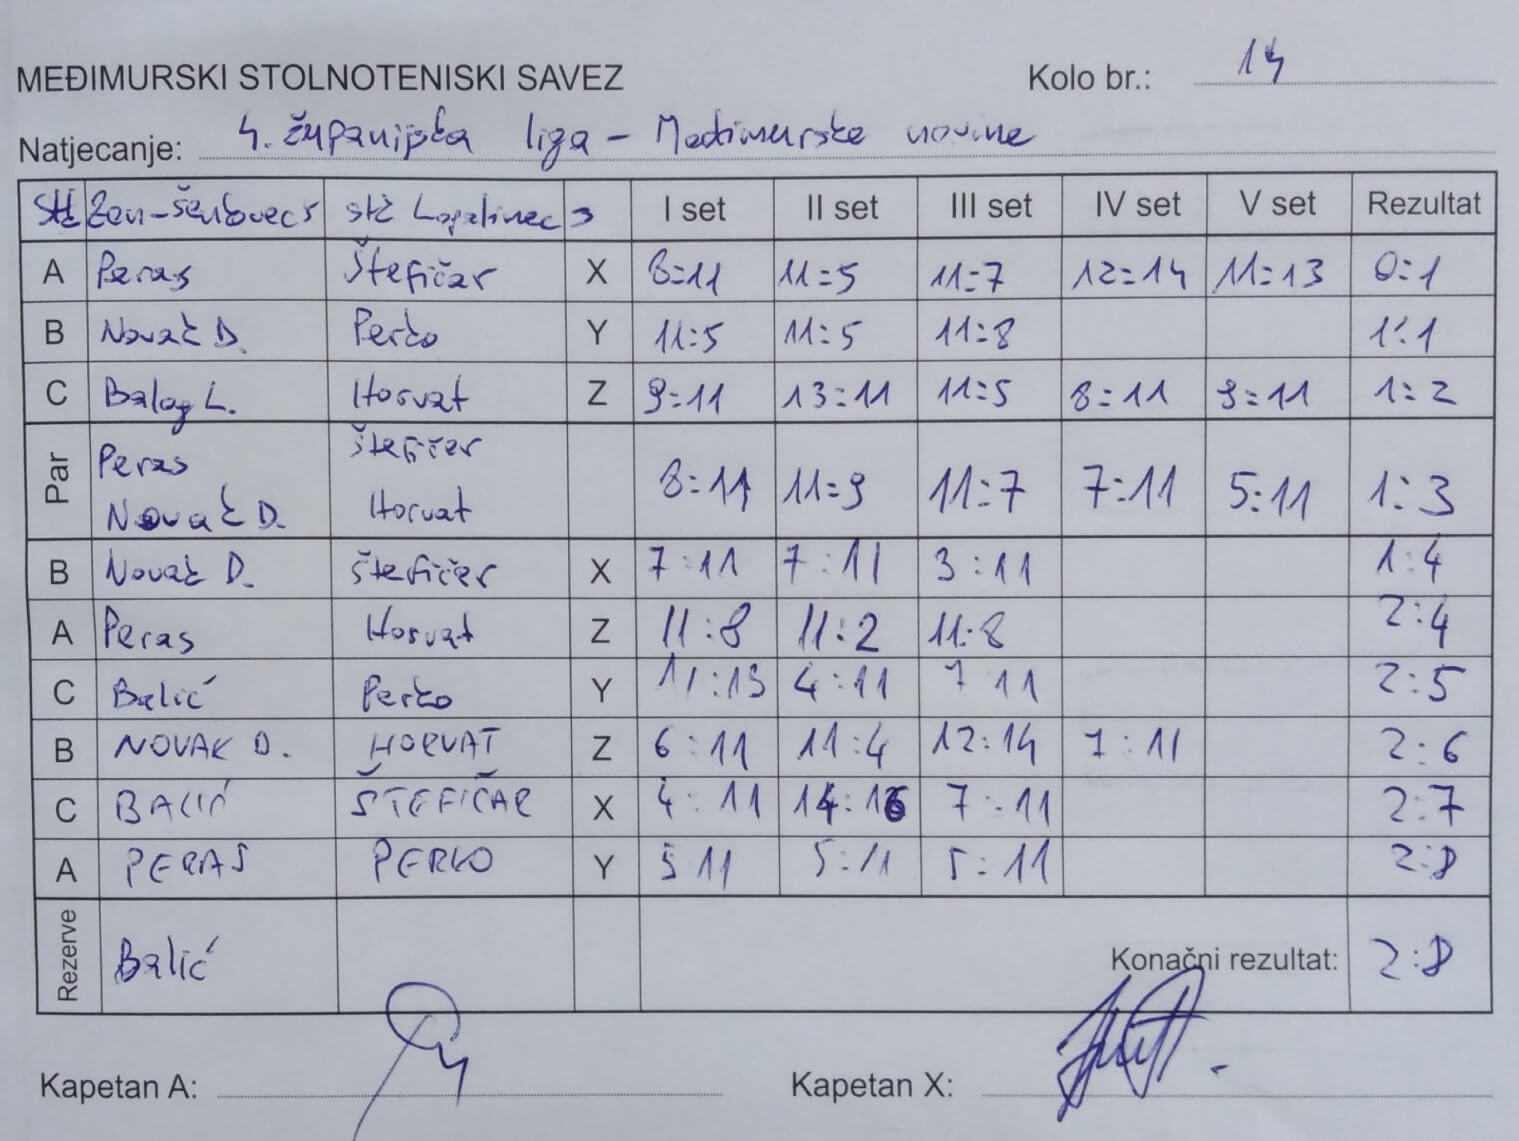 MEĐIMURSKI STOLNOTENISKI SAVEZ Kolo br.: 14
Natjecanje: 4. županijska liga - Međimurske novine
stk Lopatinec 3 I set II set III set IV set V set Rezultat
A Peras Štefičar X 8:11 11:5 11:7 12:14 11:13 0:1
B Novak D. Perko Y 11:5 11:5 11:8 1:1
C Balog L. Horvat Z 9:11 13:11 11:5 8:11 9:11 1:2
Par Peras Novak D. Štefičar Horvat 8:11 11:9 11:7 7:11 5:11 1:3
B Novak D. Štefičar X 7:11 7:11 3:11 1:4
A Peras Horvat Z 11:8 11:2 11:8 2:4
C Balić Perko Y 11:13 4:11 7 11 2:5
B NOVAK D. HORVAT Z 6:11 11:4 12:14 7:11 2:6
C BALIĆ ŠTEFIČAR X 4:11 14:16 7:11 2:7
A PERAS PERKO Y 5 11 5:11 5:11 2:8
Rezerve Balić Konačni rezultat: 2:8
Kapetan A: Kapetan X: